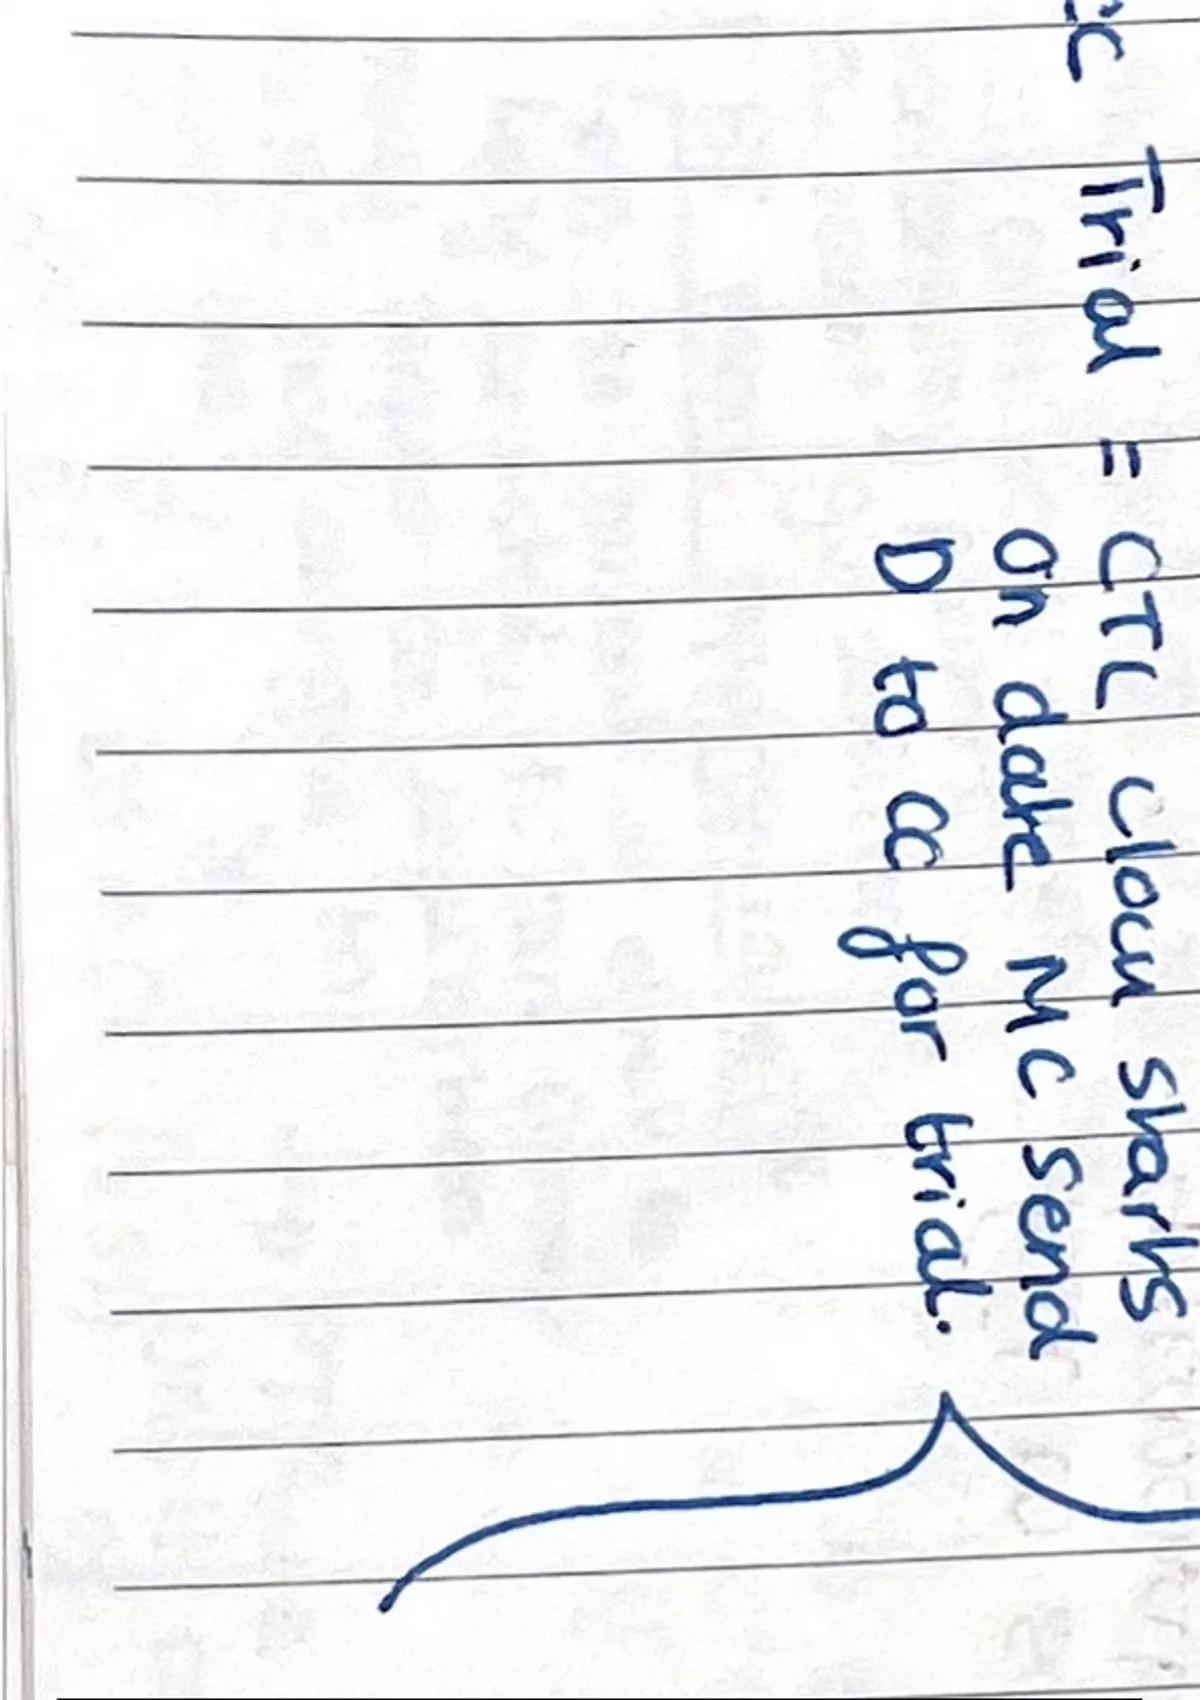 CC Trial = CTL clock starts
on date MC send
D to CC for trial.